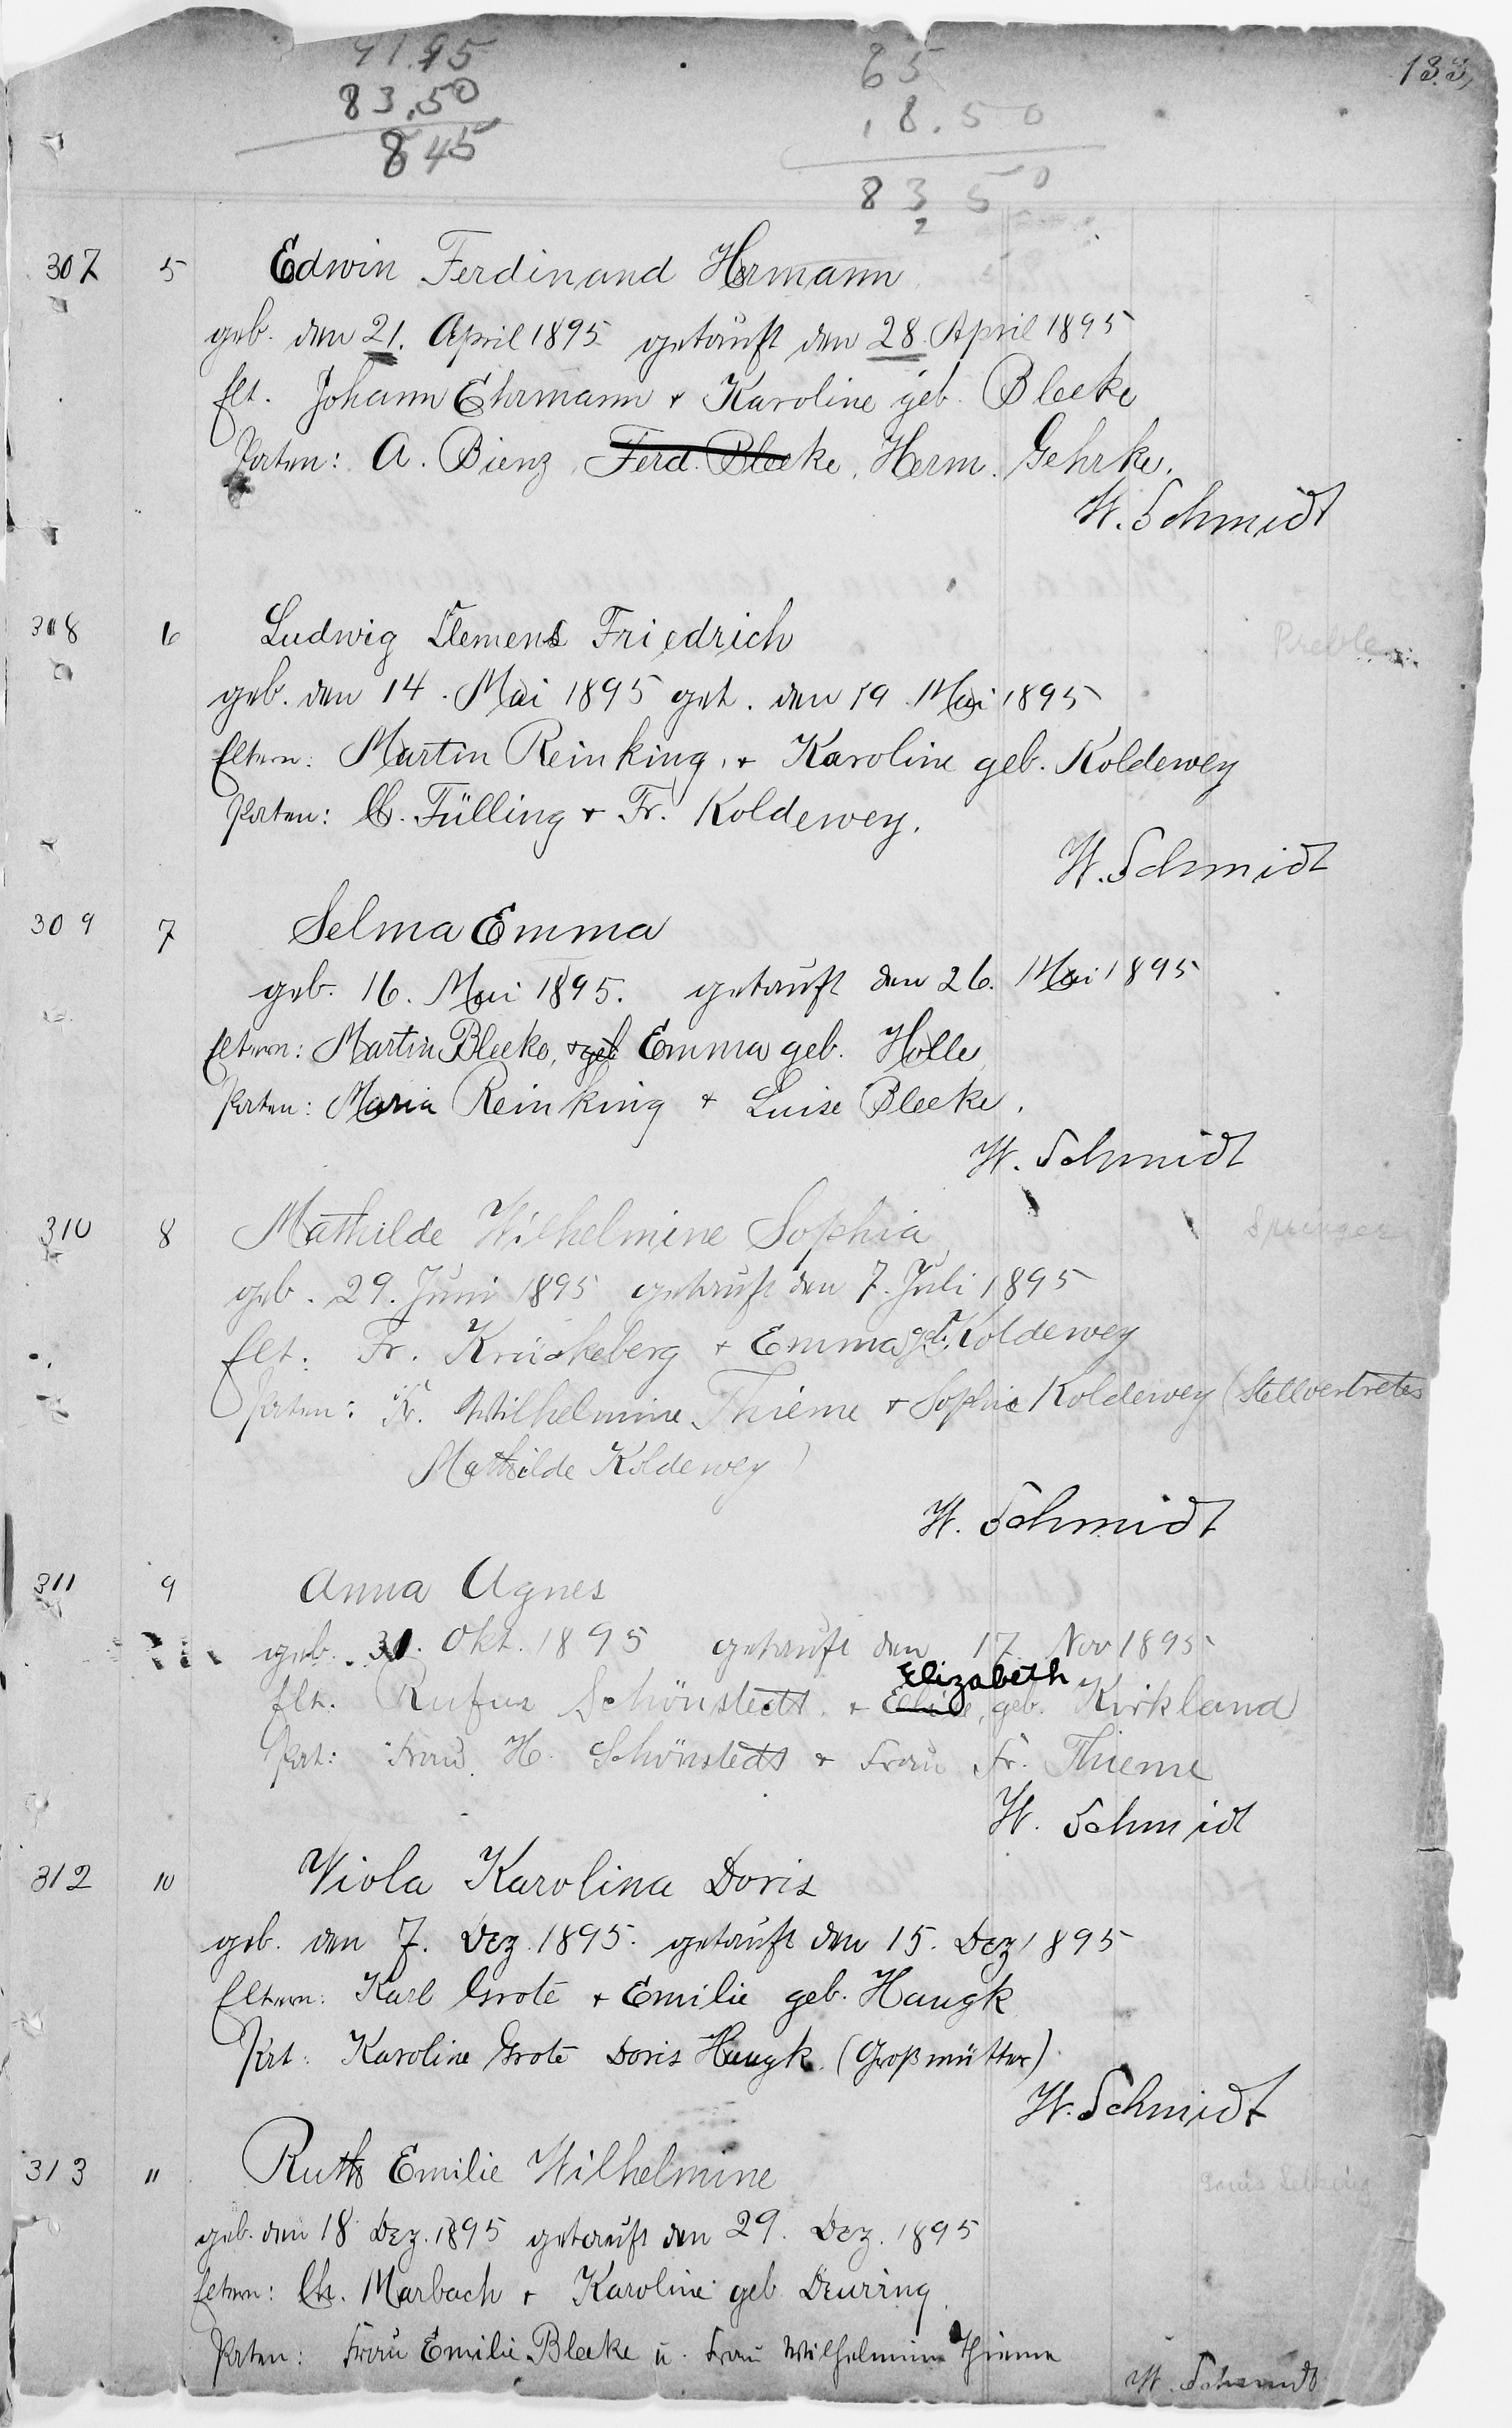 91.95
83.50
845
65
18.50
8350
2
133,
307 5 Edwin Ferdinand Hermann
geb. den 21. April 1895 getauft den 28. April 1895
Elt. Johann Ehrmann + Karoline geb. Bleeke
Paten: A. Bienz, Ferd. Bleeke, Herm. Gehrke.
W. Schmidt
308 6 Ludwig Clemens Friedrich
Preble
geb. den 14. Mai 1895 get. den 19. Mai 1895
Eltern: Martin Reinking, + Karoline geb. Koldewey
Paten: C. Fülling + Fr. Koldewey.
W. Schmidt
309 7 Selma Emma
geb. 16. Mai 1895. getauft den 26. Mai 1895
Eltern: Martin Bleeke, + geb Emma geb. Holle
Paten: Maria Reinking + Luise Bleeke.
W. Schmidt
310 8 Mathilde Wilhelmine Sophia
Springer
geb. 29. Juni 1895 getauft den 7. Juli 1895
Elt: Fr. Krückeberg + Emma geb. Koldewey
Paten: Fr. Wilhelmine Thieme + Sophie Koldewey (Stellvertreter
Mathilde Koldewey)
W. Schmidt
311 9 Anna Agnes
geb. 31. Okt. 1895 getauft den 17. Nov 1895
Elizabeth
Elt. Rufus Schönstedt. + Elise, geb. Kirkland
Pat: Frau H. Schönstedt + Frau Fr. Thieme
W. Schmidt
312 10 Viola Karolina Doris
geb. den 7. Dez. 1895. getauft den 15. Dez 1895
Eltern: Karl Grote + Emilie geb. Haugk
Pat: Karoline Grote Doris Haugk. (Großmütter)
W. Schmidt
313 11 Ruth Emilie Wilhelmine
geb. den 18 Dez. 1895 getauft den 29. Dez. 1895
Eltern: Ch. Marbach + Karoline geb Deuring
Paten: Frau Emilie Bleeke u. Frau Wilhelmine Thieme
W. Schmidt